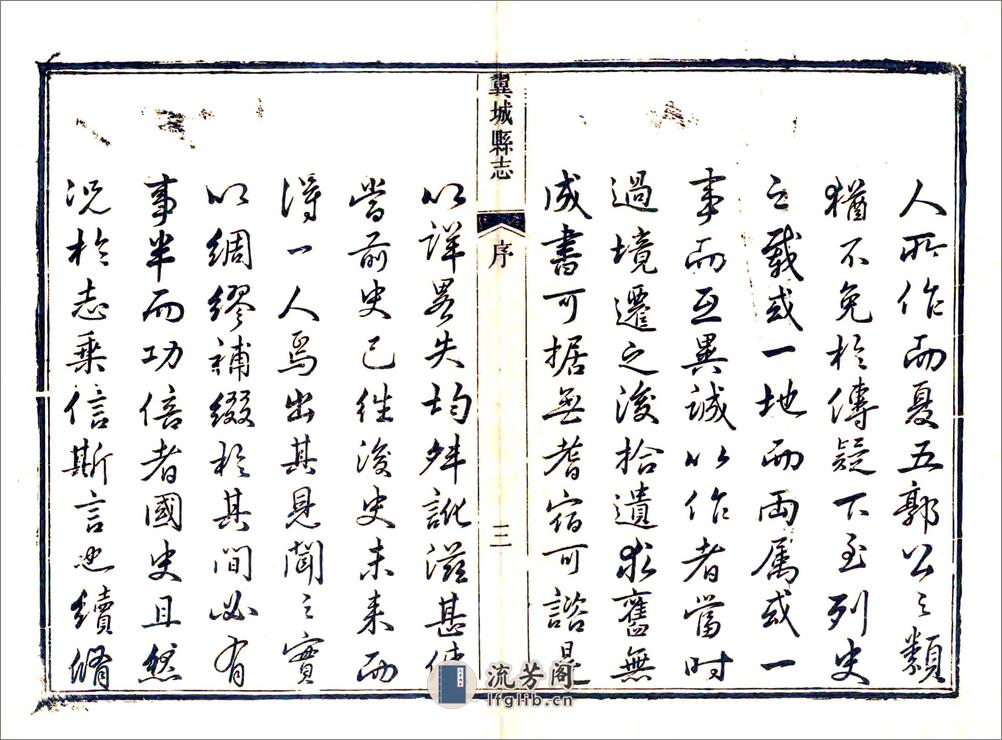 人所作而夏五郭公之類
猶不免於傳疑下至列史
之載或一地而兩属或一
事而互異誠以作者當时
過境遷之後拾遺求舊無
成書可据無耆宿可諮是
翼城縣志
序
三
以詳畧失均舛訛滋甚使
當前史已往後史未来而
得一人焉出其見聞之實
以綢繆補綴於其間必有
事半而功倍者國史且然
况於志乘信斯言也續脩
流芳阁
lfglib.cn